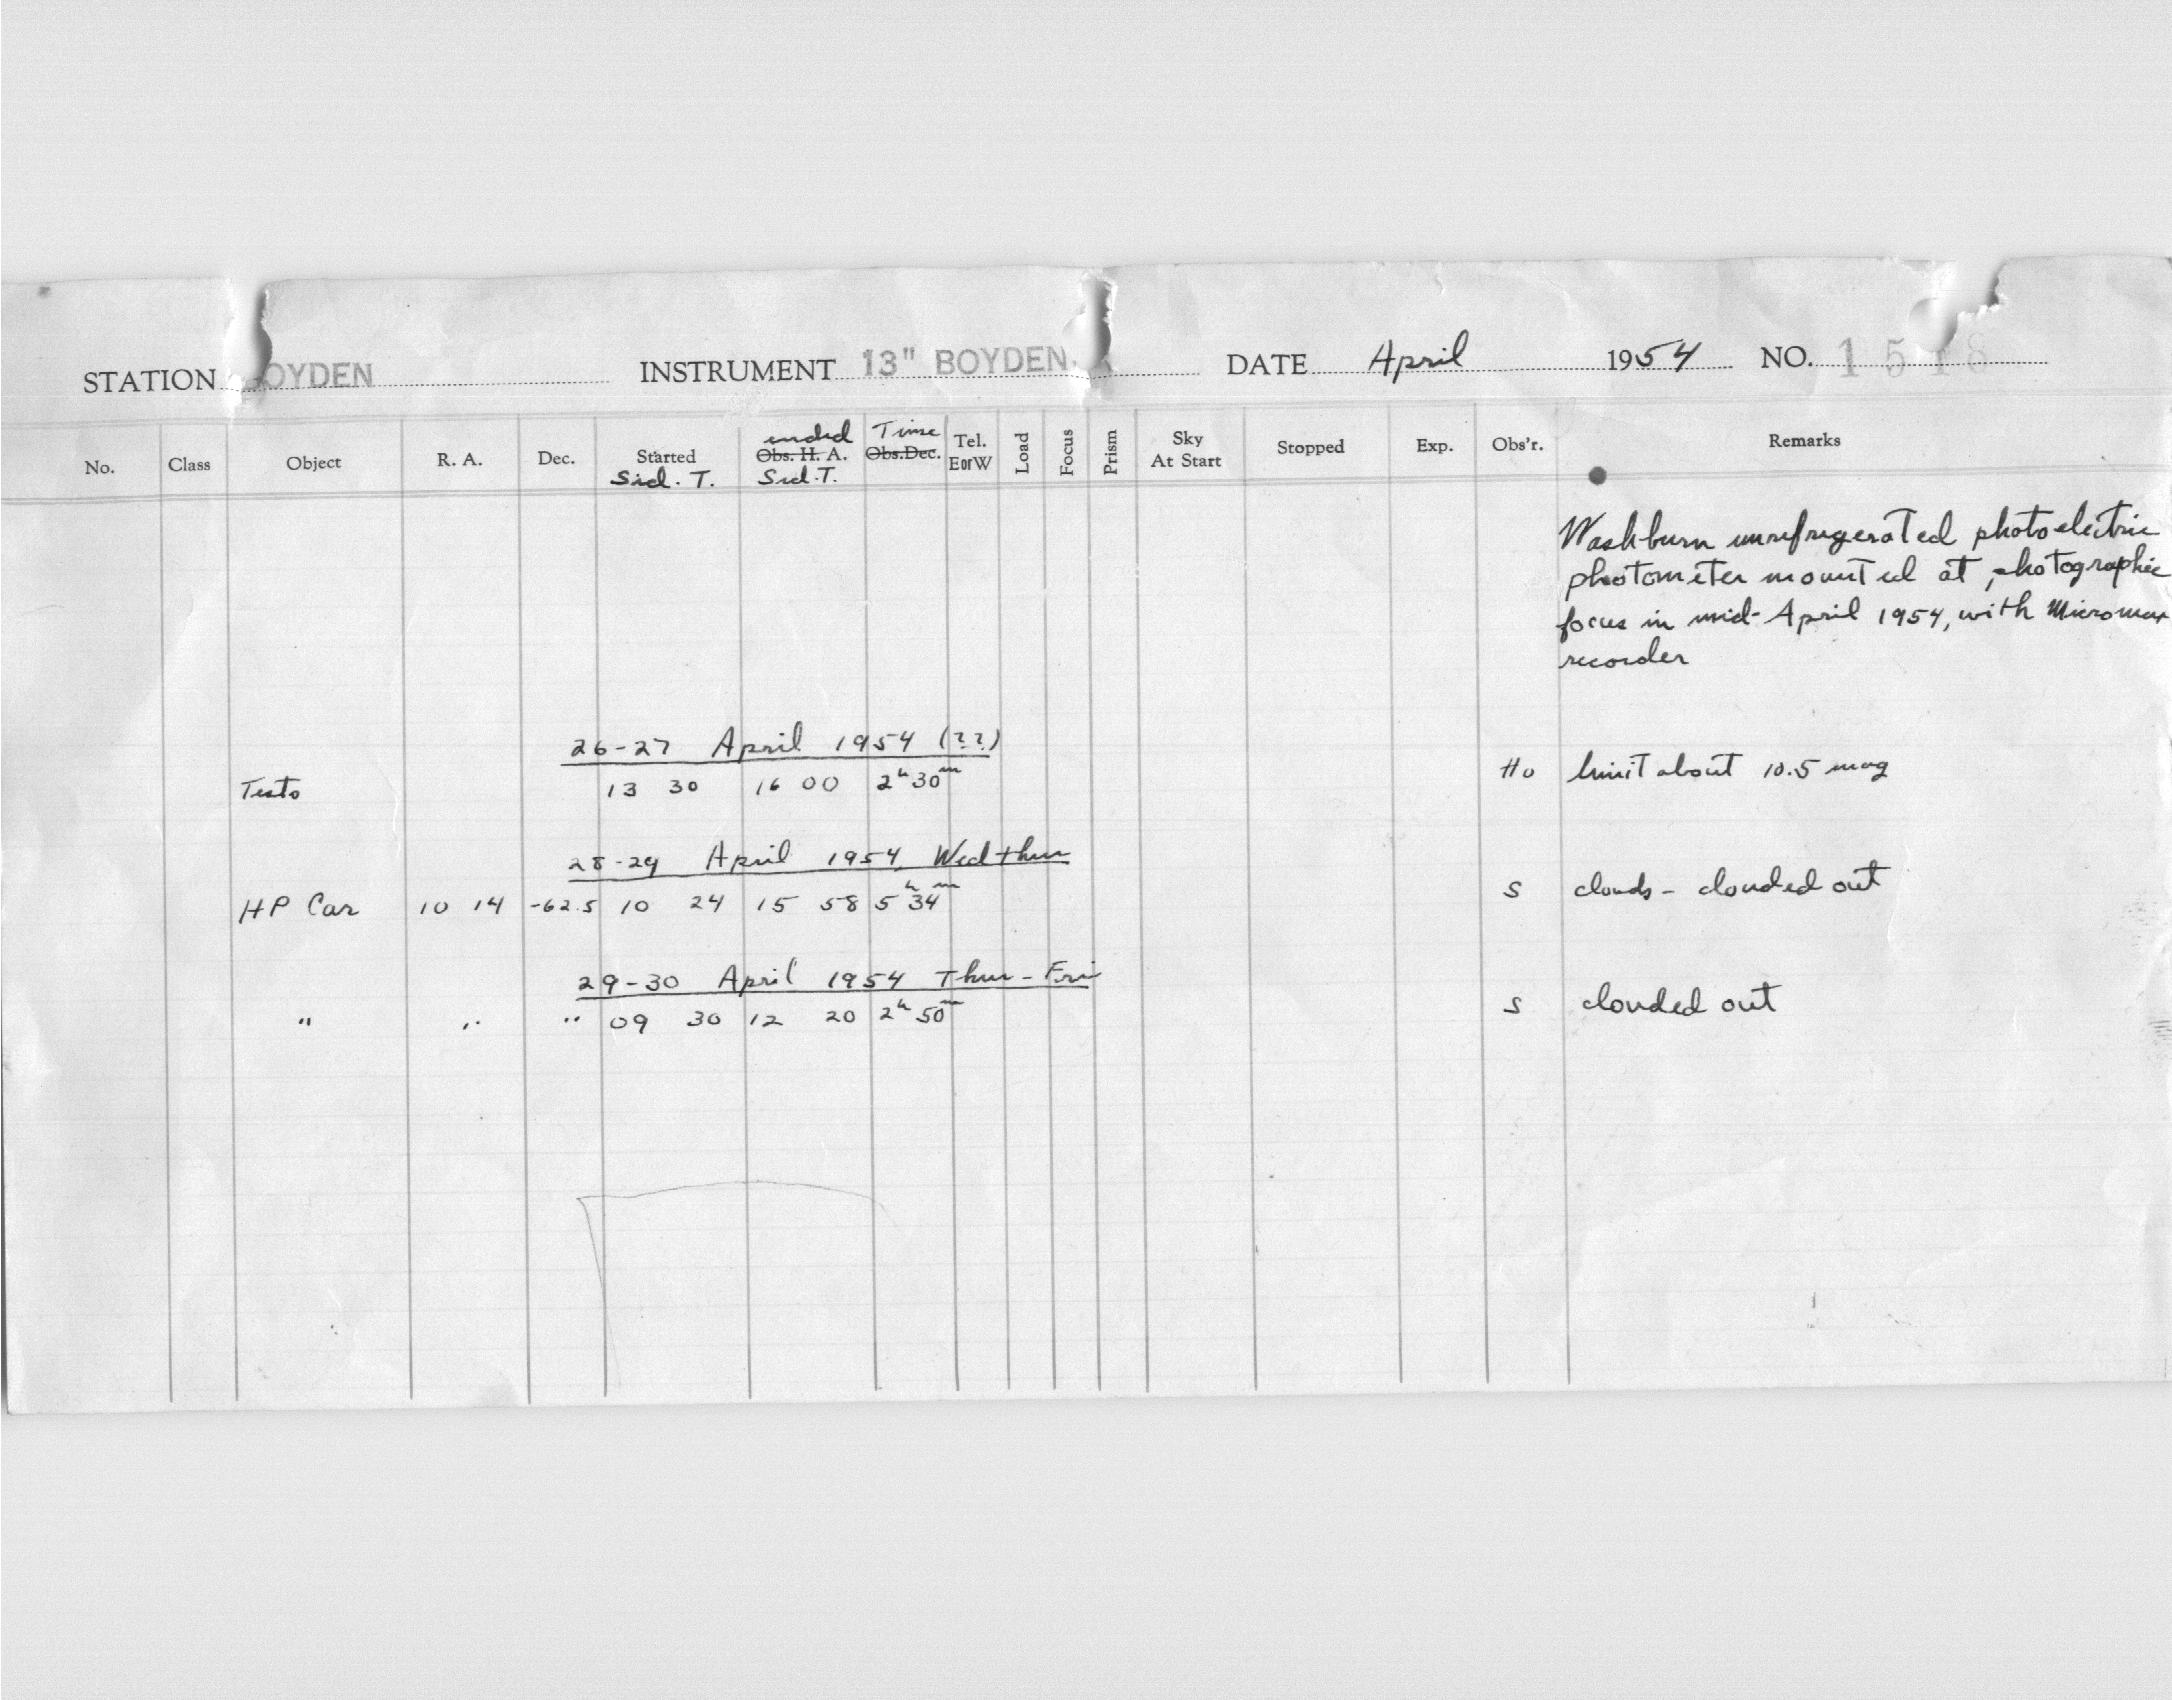 STATION OYDEN INSTRUMENT 13" BOYDEN DATE April 1954 NO. 1518
No. Class Object R. A. Dec. Started Sid. T. ended Obs. H. A. Sid. T. Time Obs.Dec. Tel. EorW Load Focus Prism Sky At Start Stopped Exp. Obs'r. Remarks
Washburn unrefrigerated photoelectric
photometer mounted at photographic
focus in mid-April 1954, with Micromax
recorder
26-27 April 1954 (??)
Tests 13 30 16 00 2h30m Ho limit about 10.5 mag
28-29 April 1954 Wed thur
HP Car 10 14 -62.5 10 24 15 58 5h34m S clouds - clouded out
29-30 April 1954 Thur - Fri
" " " 09 30 12 20 2h50m S clouded out